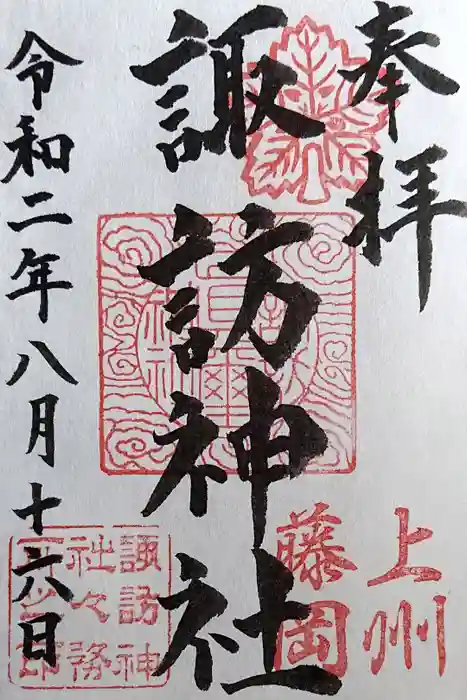 奉拝
上州
藤岡
諏訪神社
令和二年八月十六日
諏訪神
社々務